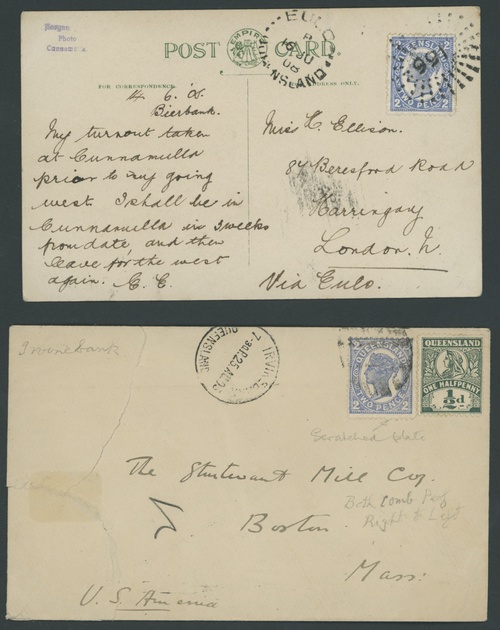 Reegan
Photo
Cunnamulla
EMPIRE
POST CARD
FOR CORRESPONDENCE
ADDRESS ONLY.
EULO
P
16 JU
08
QUEENSLAND
QUEENSLAND
2 TWO PENCE 2
14. 6. 08.
Bierbank.
My turnout taken
at Cunnamulla
prior to my going
west. I shall be in
Cunnamulla in 3 weeks
from date, and then
leave for the west
again. E. E.
Miss H. Ellison.
84 Beresford Road
Harringay
London. N.
Via Eulo.
Irvinebank
7-30P 25 AU
QUEENSLAND
QUEENSLAND
2 TWO PENCE 2
QUEENSLAND
ONE HALFPENNY
1/2d
Scratched plate
The Sturtevant Mill Coy.
Both Comb Perf
Right to Left
Boston.
Mass:
U.S. America